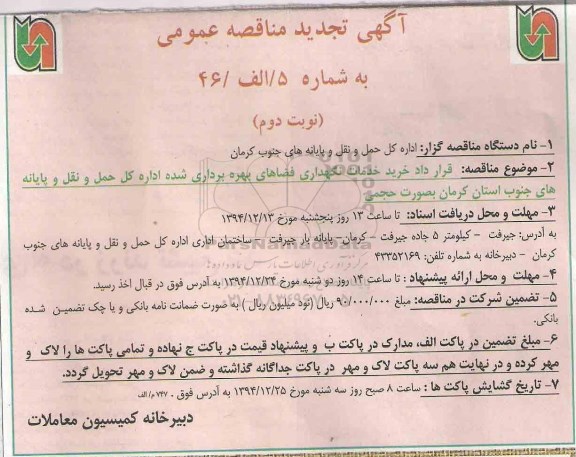 آگهی تجدید مناقصه عمومی
به شماره ۵/الف /۴۶
(نوبت دوم)
۱- نام دستگاه مناقصه گزار: اداره کل حمل و نقل و پایانه های جنوب کرمان
۲- موضوع مناقصه: قرار داد خرید خدمات نگهداری فضاهای بهره برداری شده اداره کل حمل و نقل و پایانه
های جنوب استان کرمان بصورت حجمی
۳- مهلت و محل دریافت اسناد: تا ساعت ۱۳ روز پنجشنبه مورخ ۱۳۹۴/۱۲/۱۳
به آدرس: جیرفت - کیلومتر ۵ جاده جیرفت - کرمان- پایانه بار جیرفت - ساختمان اداری اداره کل حمل و نقل و پایانه های جنوب
کرمان - دبیرخانه به شماره تلفن: ۴۳۳۵۲۱۶۹
۴- مهلت و محل ارائه پیشنهاد : تا ساعت ۱۴ روز دو شنبه مورخ ۱۳۹۴/۱۲/۲۴ به آدرس فوق در قبال اخذ رسید.
۵- تضمین شرکت در مناقصه: مبلغ ۹۰/۰۰۰/۰۰۰ ریال (نود میلیون ریال ) به صورت ضمانت نامه بانکی و یا چک تضمین شده
بانکی.
۶- مبلغ تضمین در پاکت الف، مدارک در پاکت ب و پیشنهاد قیمت در پاکت ج نهاده و تمامی پاکت ها را لاک و
مهر کرده و در نهایت هم سه پاکت لاک و مهر در پاکت جداگانه گذاشته و ضمن لاک و مهر تحویل گردد.
۷- تاریخ گشایش پاکت ها : ساعت ۸ صبح روز سه شنبه مورخ ۱۳۹۴/۱۲/۲۵ به آدرس فوق . ۷۴۷ م/الف
دبیرخانه کمیسیون معاملات